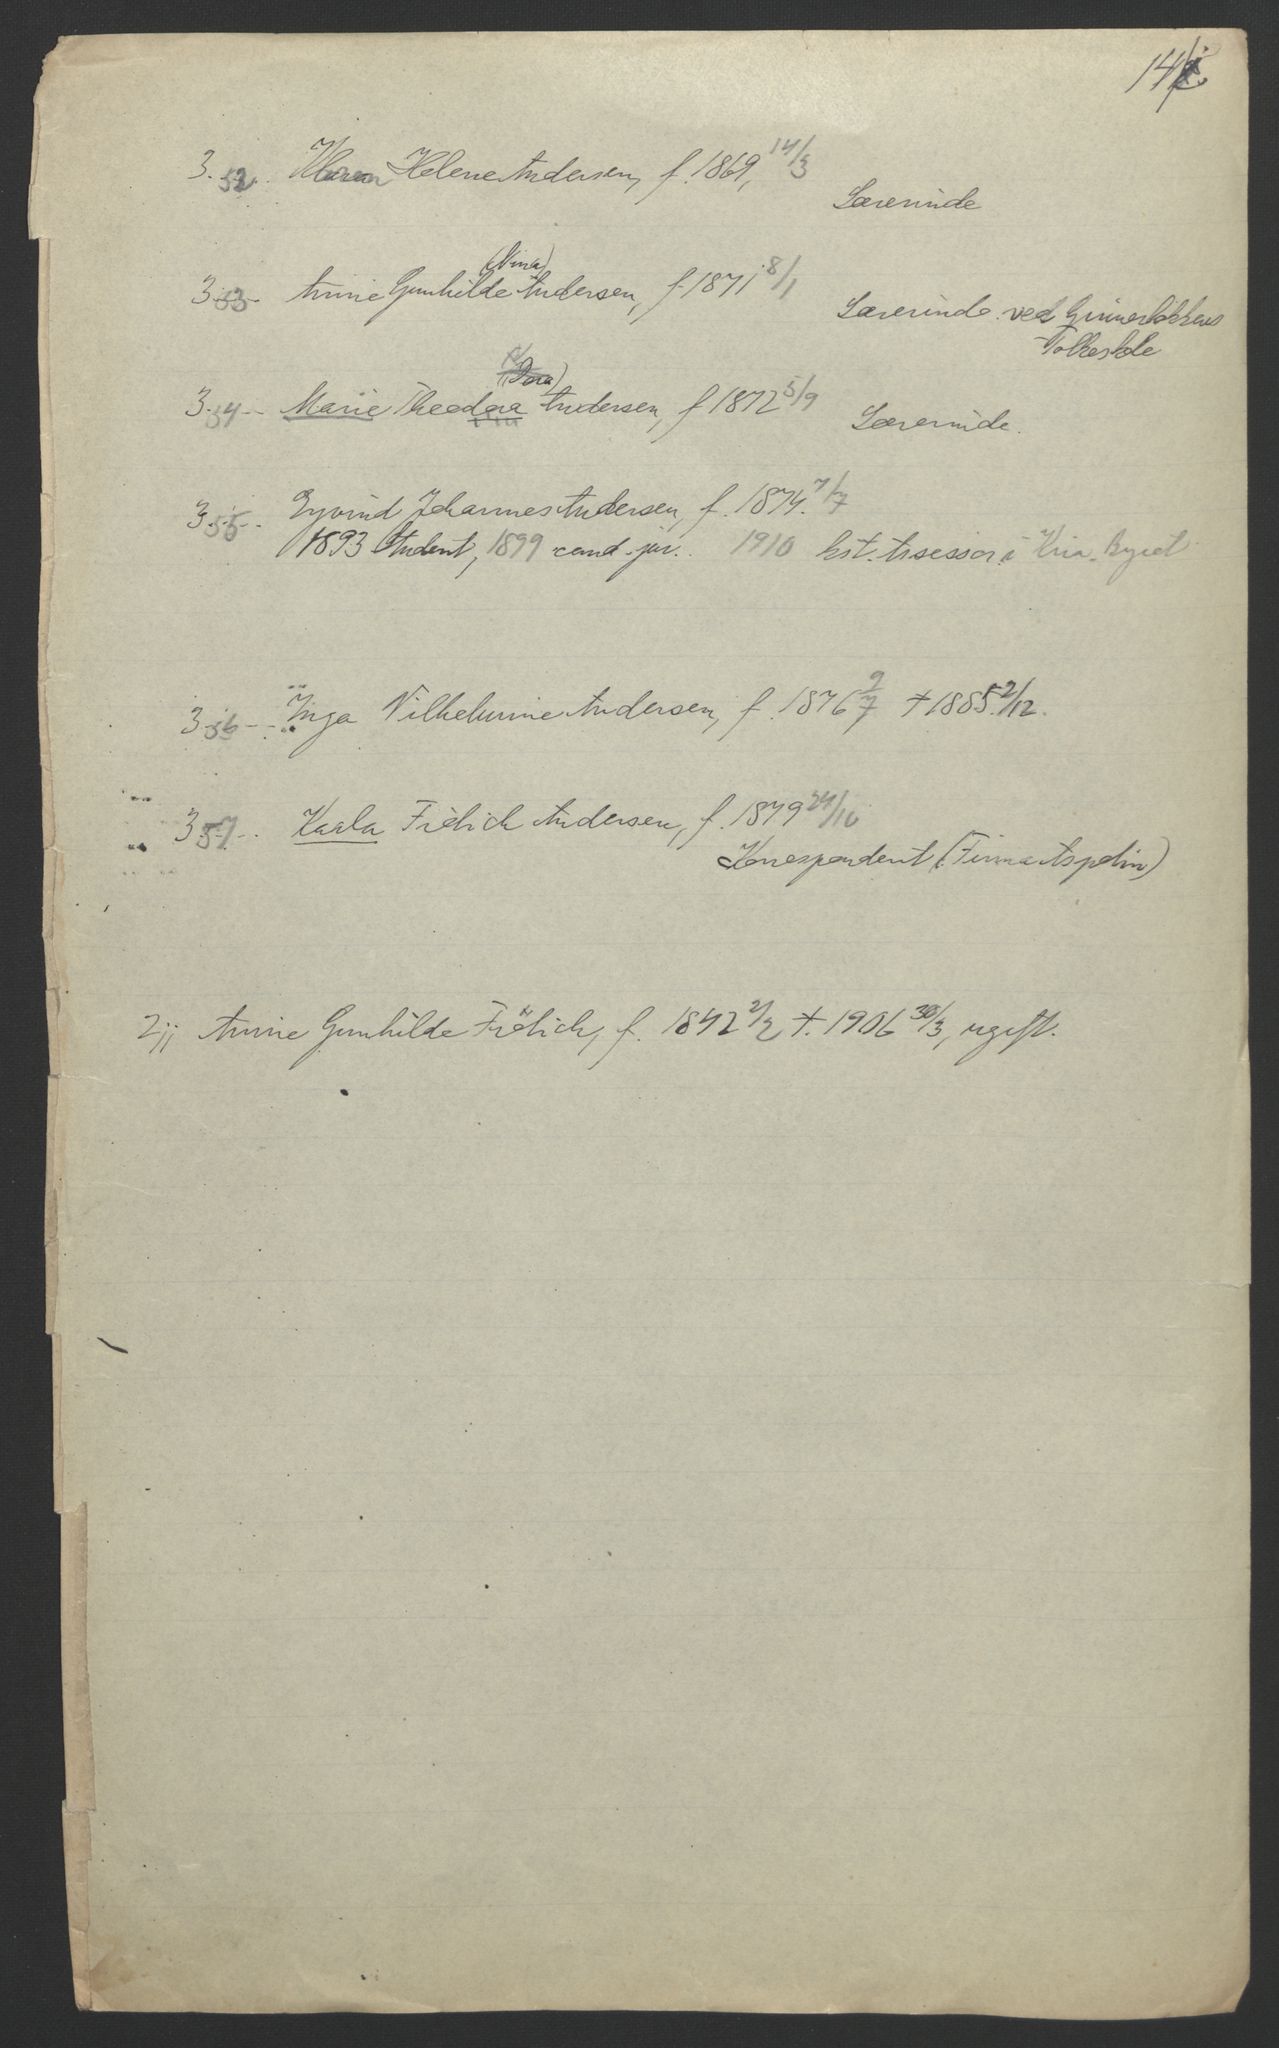 14
3.52. Helene Andersen, f. 1869, 14/3
Lærerinde
(Nina)
3.53. Anne Gunhilde Andersen, f 1871 8/1
Lærerinde ved Grünerløkkens
Folkeskole
(Dora)
3.54 - Marie Theodora Andersen, f 1872 5/9
Lærerinde.
3.55. Eyvind Johannes Andersen, f. 1874. 7/7
1893 Student, 1899 cand. jur. 1910 kst. Assessor i Kria. Byret
3.56 - Inga Vilhelmine Andersen, f. 1876 9/7 † 1885 2/12.
3.57. Karla Frölich Andersen, f. 1879 24/10
Korrespondent (Firma Aspelin)
2jj Anne Gunhilde Frölich, f. 1842 2/2 †. 1906 30/3, ugift.